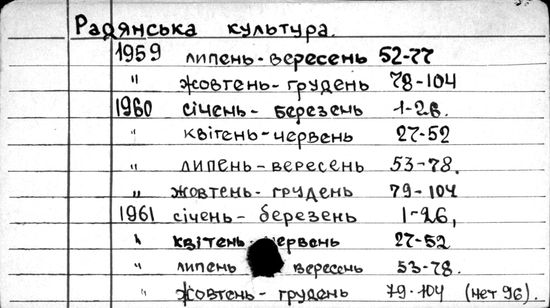 Радянська культура.
1959 липень-вересень 52-77
" жовтень-грудень 78-104
1960 січень-березень 1-26.
" квітень-червень 27-52
" липень-вересень 53-78.
" жовтень-грудень 79-104
1961 січень-березень 1-26,
" квітень-червень 27-52
" липень вересень 53-78.
" жовтень-грудень 79-104 (нет 96).